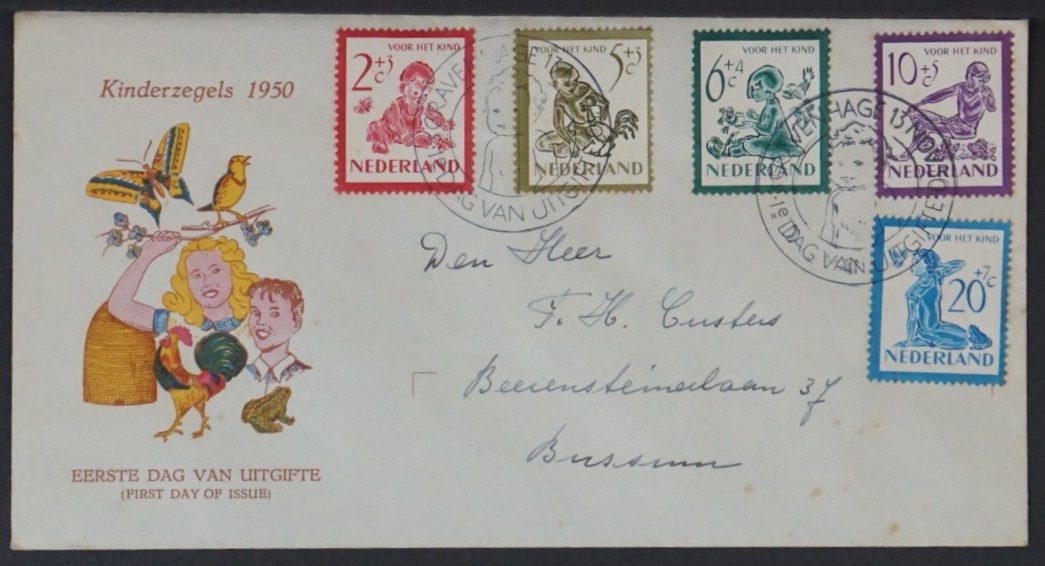 Kinderzegels 1950
VOOR HET KIND
2+3c
NEDERLAND
VOOR HET KIND
5+3c
NEDERLAND
VOOR HET KIND
6+4c
NEDERLAND
VOOR HET KIND
10+5c
NEDERLAND
VOOR HET KIND
20+7c
NEDERLAND
1e DAG VAN UITGIFTE
Den Heer
F. H. Custers
Beerensteinerlaan 37
Bussum
EERSTE DAG VAN UITGIFTE
(FIRST DAY OF ISSUE)